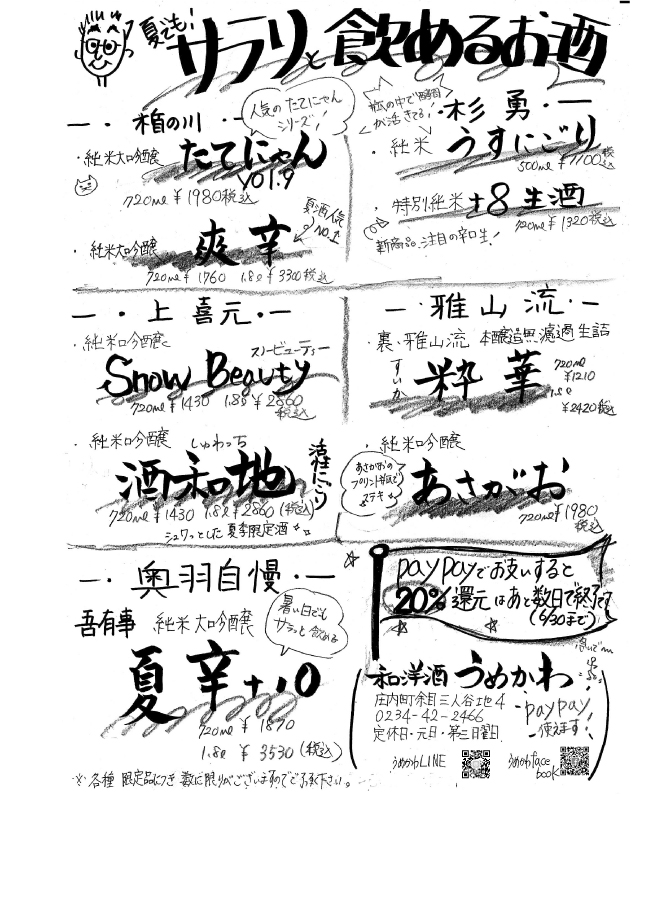 夏でも!
サラリと飲めるお酒
― ・ 楯の川 ・ ―
人気の たてにゃん
シリーズ!
・純米大吟醸 たてにゃん
vol.9
720ml ¥1980税込
夏酒人気
No.1
・純米大吟醸 爽辛
720ml ¥1760 1.8ℓ ¥3300税込
瓶の中で酵母
が活きてる!
― ・ 杉勇 ・ ―
・純米 うすにごり
500ml ¥1100税込
・特別純米 +8 生酒
720ml ¥1320税込
新商品、注目の辛口生!
― ・ 上喜元 ・ ―
・純米吟醸
スノービューティー
Snow Beauty
720ml ¥1430 1.8ℓ ¥2860
税込
・純米吟醸 しゅわっち
酒和地
活性にごり
720ml ¥1430 1.8ℓ ¥2860 (税込)
シュワっとした夏季限定酒
― ・ 雅山流 ・ ―
・裏・雅山流 本醸造無濾過生詰
すいか
粋華
720ml
¥1210
1.8ℓ
¥2420税込
・純米吟醸
あさがおの
プリント瓶で
ステキ
あさがお
720ml ¥1980
税込
― ・ 奥羽自慢 ・ ―
吾有事 純米大吟醸
暑い日でも
サラっと飲める
夏辛+10
720ml ¥1870
1.8ℓ ¥3530 (税込)
※各種限定品につき数に限りがございますのでご了承下さい。
paypayでお支払いすると
20%還元はあと数日で終了です
(6/30まで)
急いで
和洋酒 うめかわ
庄内町余目三人谷地4
0234-42-2466
定休日・元日・第三日曜日
paypay
使えます!
うめかわLINE
うめかわface
book